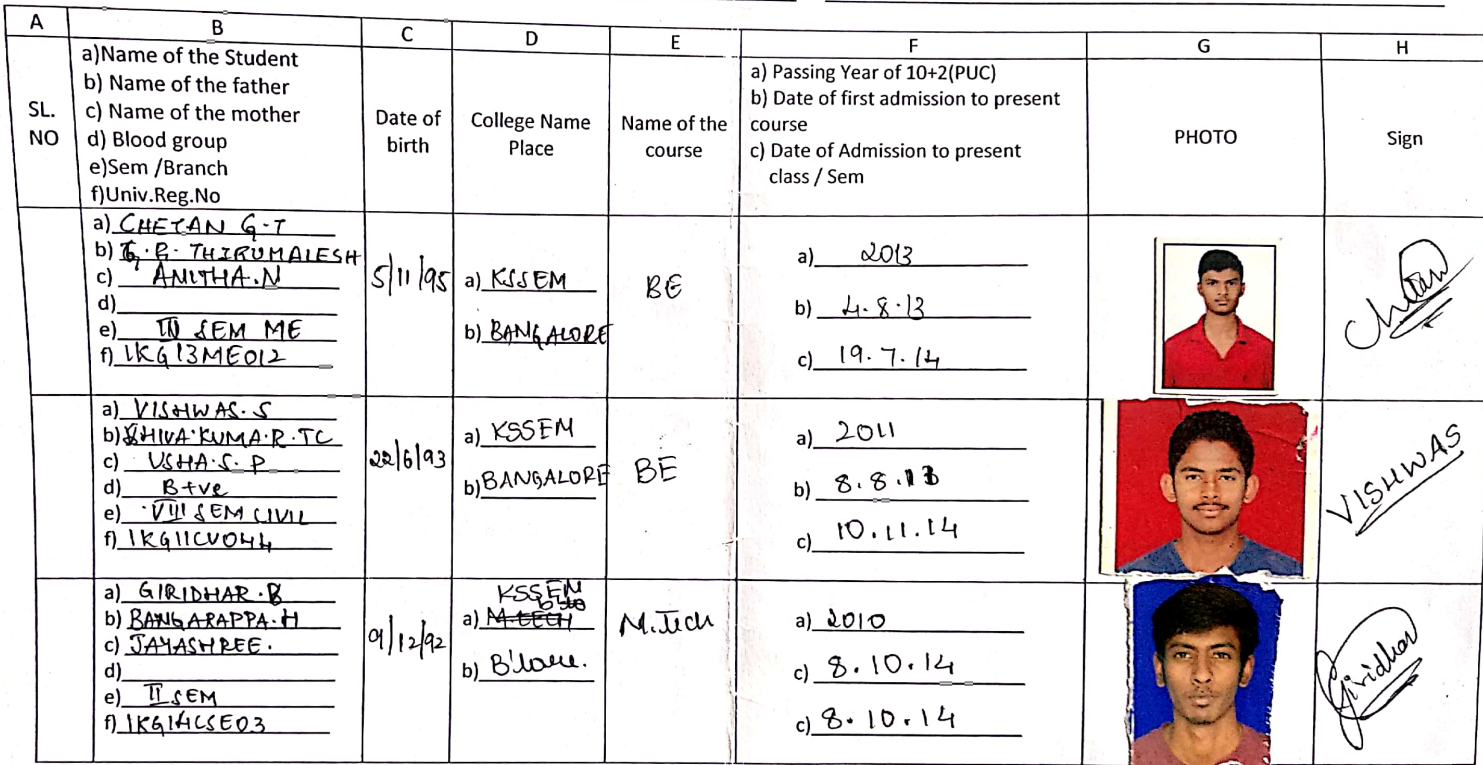 A B C D E F G H
SL. NO
a)Name of the Student
b) Name of the father
c) Name of the mother
d) Blood group
e)Sem /Branch
f)Univ.Reg.No
Date of birth
College Name Place
Name of the course
a) Passing Year of 10+2(PUC)
b) Date of first admission to present
course
c) Date of Admission to present
class / Sem
PHOTO
Sign
a) CHETAN G.T
b) G.R. THIRUMALESH
c) ANITHA.N
d)
e) SEM ME
f) 1KG13ME012
5/11/95
a) KSSEM
b) BANGALORE
BE
a) 2013
b) 4.8.13
c) 19.7.14
Chetan
a) VISHWAS.S
b) SHIVA.KUMA.R.TC
c) USHA.S.P
d) B+ve
e) VIII SEM CIVIL
f) 1KG11CV044
22/6/93
a) KSSEM
b) BANGALORE
BE
a) 2011
b) 8.8.11
c) 10.11.14
VISHWAS
a) GIRIDHAR.B
b) BANGARAPPA.H
c) JAYASHREE.
d)
e) II SEM
f) 1KG14CSE03
9/12/92
KSSEM
a) M.TECH
b) B'lore.
M.Tech
a) 2010
c) 8.10.14
c) 8.10.14
Giridhar